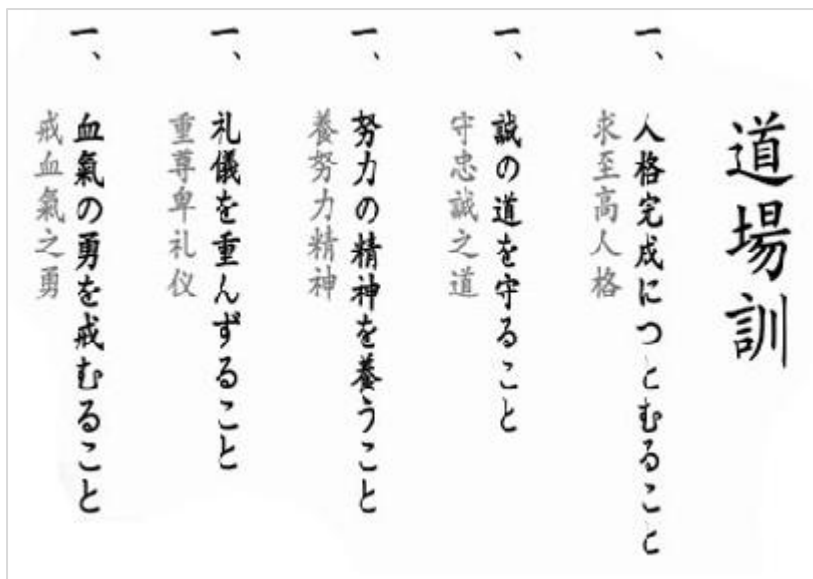 道場訓
一、人格完成につとむること
求至高人格
一、誠の道を守ること
守忠誠之道
一、努力の精神を養うこと
養努力精神
一、礼儀を重んずること
重尊卑礼仪
一、血氣の勇を戒むること
戒血氣之勇